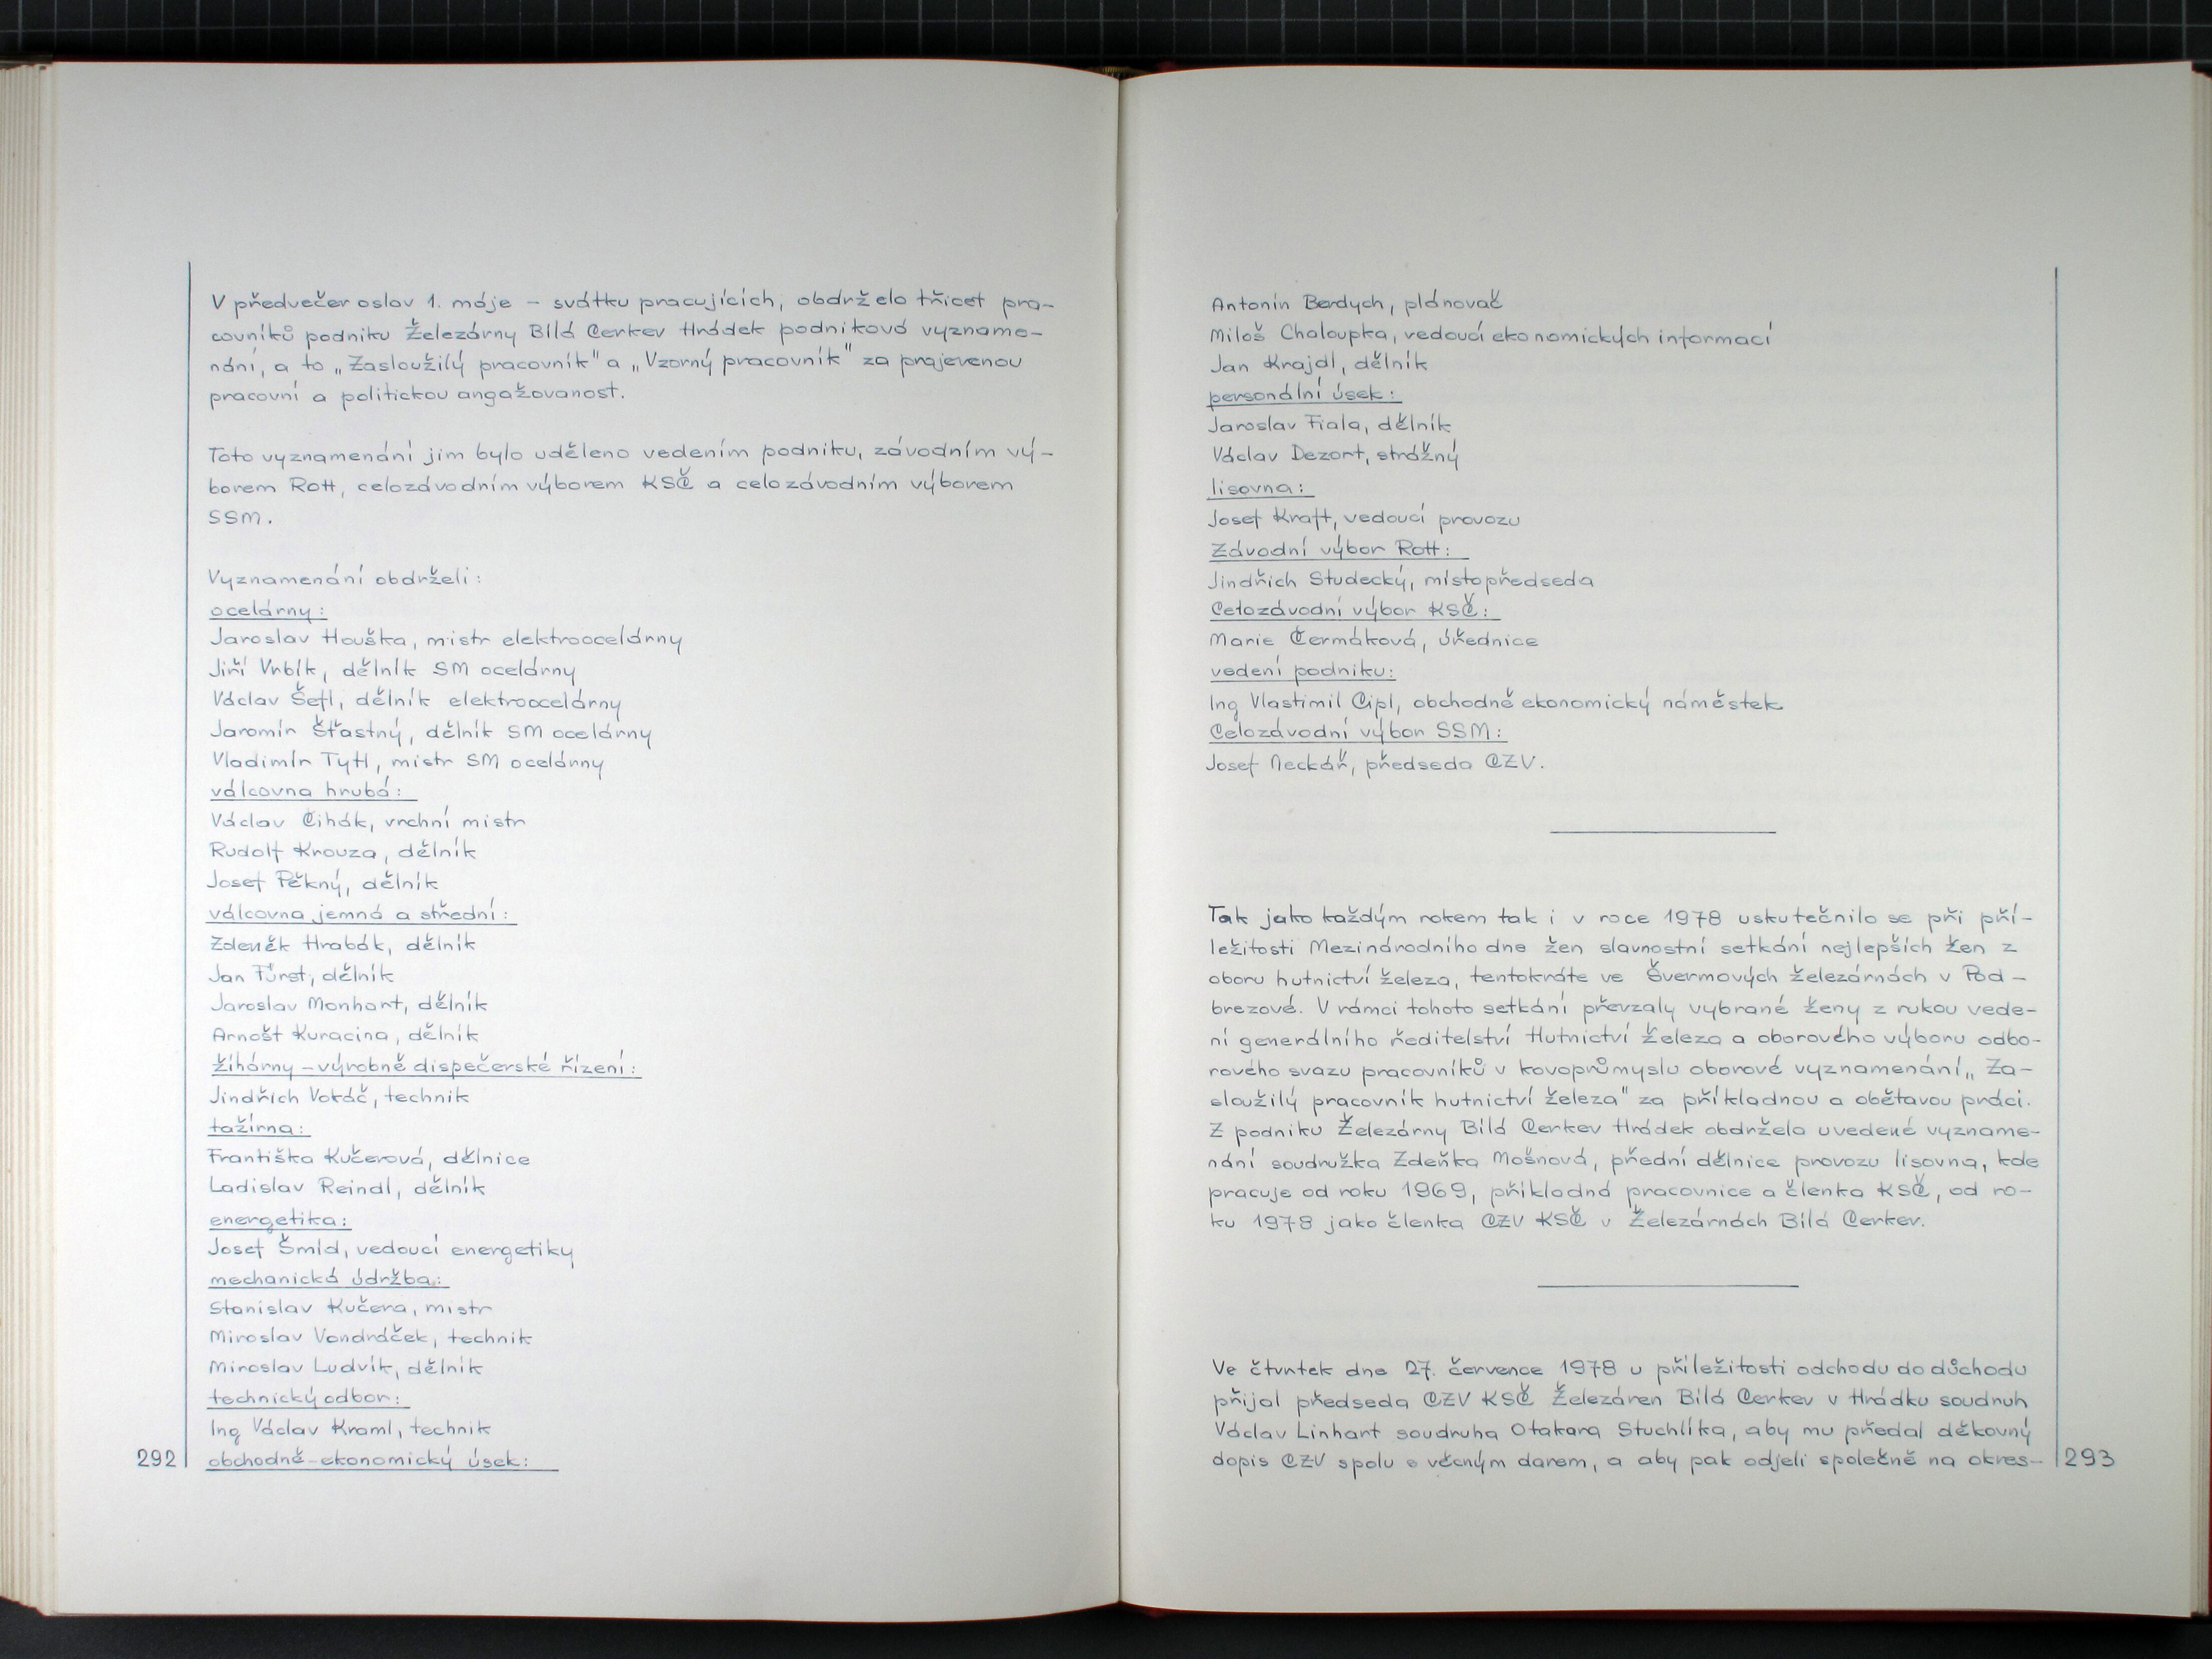 V předvečer oslav 1. máje – svátku pracujících, obdrželo třicet pra-
covníků podniku Železárny Bílá Cerkev Hrádek podniková vyzname-
nání, a to „Zasloužilý pracovník" a „Vzorný pracovník" za projevenou
pracovní a politickou angažovanost.
Toto vyznamenání jim bylo uděleno vedením podniku, závodním vý-
borem RoH, celozávodním výborem KSČ a celozávodním výborem
SSM.
Vyznamenání obdrželi:
ocelárny:
Jaroslav Houška, mistr elektroocelárny
Jiří Vrbík, dělník SM ocelárny
Václav Šefl, dělník elektroocelárny
Jaromír Šťastný, dělník SM ocelárny
Vladimír Tytl, mistr SM ocelárny
válcovna hrubá:
Václav Cihák, vrchní mistr
Rudolf Krouza, dělník
Josef Pěkný, dělník
válcovna jemná a střední:
Zdeněk Hrabák, dělník
Jan Fürst, dělník
Jaroslav Monhart, dělník
Arnošt Kuracina, dělník
žíhárny – výrobně dispečerské řízení:
Jindřich Vokáč, technik
tažírna:
Františka Kučerová, dělnice
Ladislav Reindl, dělník
energetika:
Josef Šmíd, vedoucí energetiky
mechanická údržba:
Stanislav Kučera, mistr
Miroslav Vondráček, technik
Miroslav Ludvík, dělník
technický odbor:
Ing Václav Kraml, technik
obchodně-ekonomický úsek:
292
Antonín Berdych, plánovač
Miloš Chaloupka, vedoucí ekonomických informací
Jan Krajdl, dělník
personální úsek:
Jaroslav Fiala, dělník
Václav Dezort, strážný
lisovna:
Josef Kraft, vedoucí provozu
Závodní výbor RoH:
Jindřich Studecký, místopředseda
Celozávodní výbor KSČ:
Marie Čermáková, úřednice
vedení podniku:
Ing Vlastimil Cipl, obchodně ekonomický náměstek
Celozávodní výbor SSM:
Josef Neckář, předseda CZV.
Tak jako každým rokem tak i v roce 1978 uskutečnilo se při pří-
ležitosti Mezinárodního dne žen slavnostní setkání nejlepších žen z
oboru hutnictví železa, tentokráte ve Švermových železárnách v Pod-
brezové. V rámci tohoto setkání převzaly vybrané ženy z rukou vede-
ní generálního ředitelství Hutnictví železa a oborového výboru odbo-
rového svazu pracovníků v kovoprůmyslu oborové vyznamenání „Za-
sloužilý pracovník hutnictví železa" za příkladnou a obětavou práci.
Z podniku Železárny Bílá Cerkev Hrádek obdržela uvedené vyzname-
nání soudružka Zdeňka Mošnová, přední dělnice provozu lisovna, kde
pracuje od roku 1969, příkladná pracovnice a členka KSČ, od ro-
ku 1978 jako členka CZV KSČ v Železárnách Bílá Cerkev.
Ve čtvrtek dne 27. července 1978 u příležitosti odchodu do důchodu
přijal předseda CZV KSČ Železáren Bílá Cerkev v Hrádku soudruh
Václav Linhart soudruha Otakara Stuchlíka, aby mu předal děkovný
dopis CZV spolu s věcným darem, a aby pak odjeli společně na okres-
293